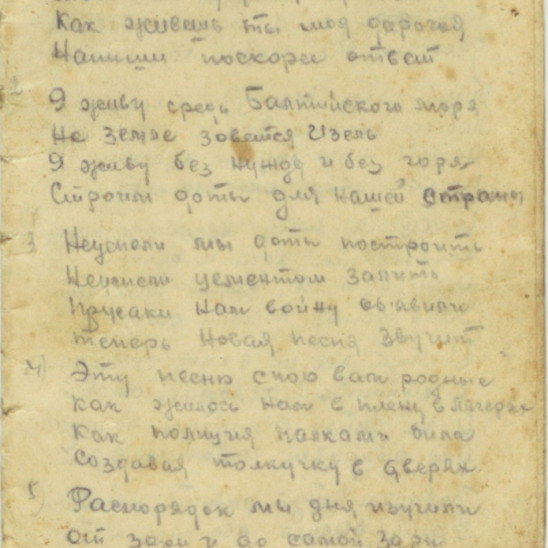 Как живеш ты моя дарогая
Напиши поскорей ответ
2
Я живу средь Балтийского моря
На земле зовется Изель
Я живу без нужды и без горя
Строим доты для нашей страны
3 Неуспели мы доты построить
Неуспели цементом залить
Прусаки нам войну об'явили
теперь новая песня звучит
4) Эту песню спою вам родные
как жилось нам в плену в лагерях
Как полиция палками била
Создавая толкучку в дверях
5) Распорядок мы дня изучили
от зари и до самой зари